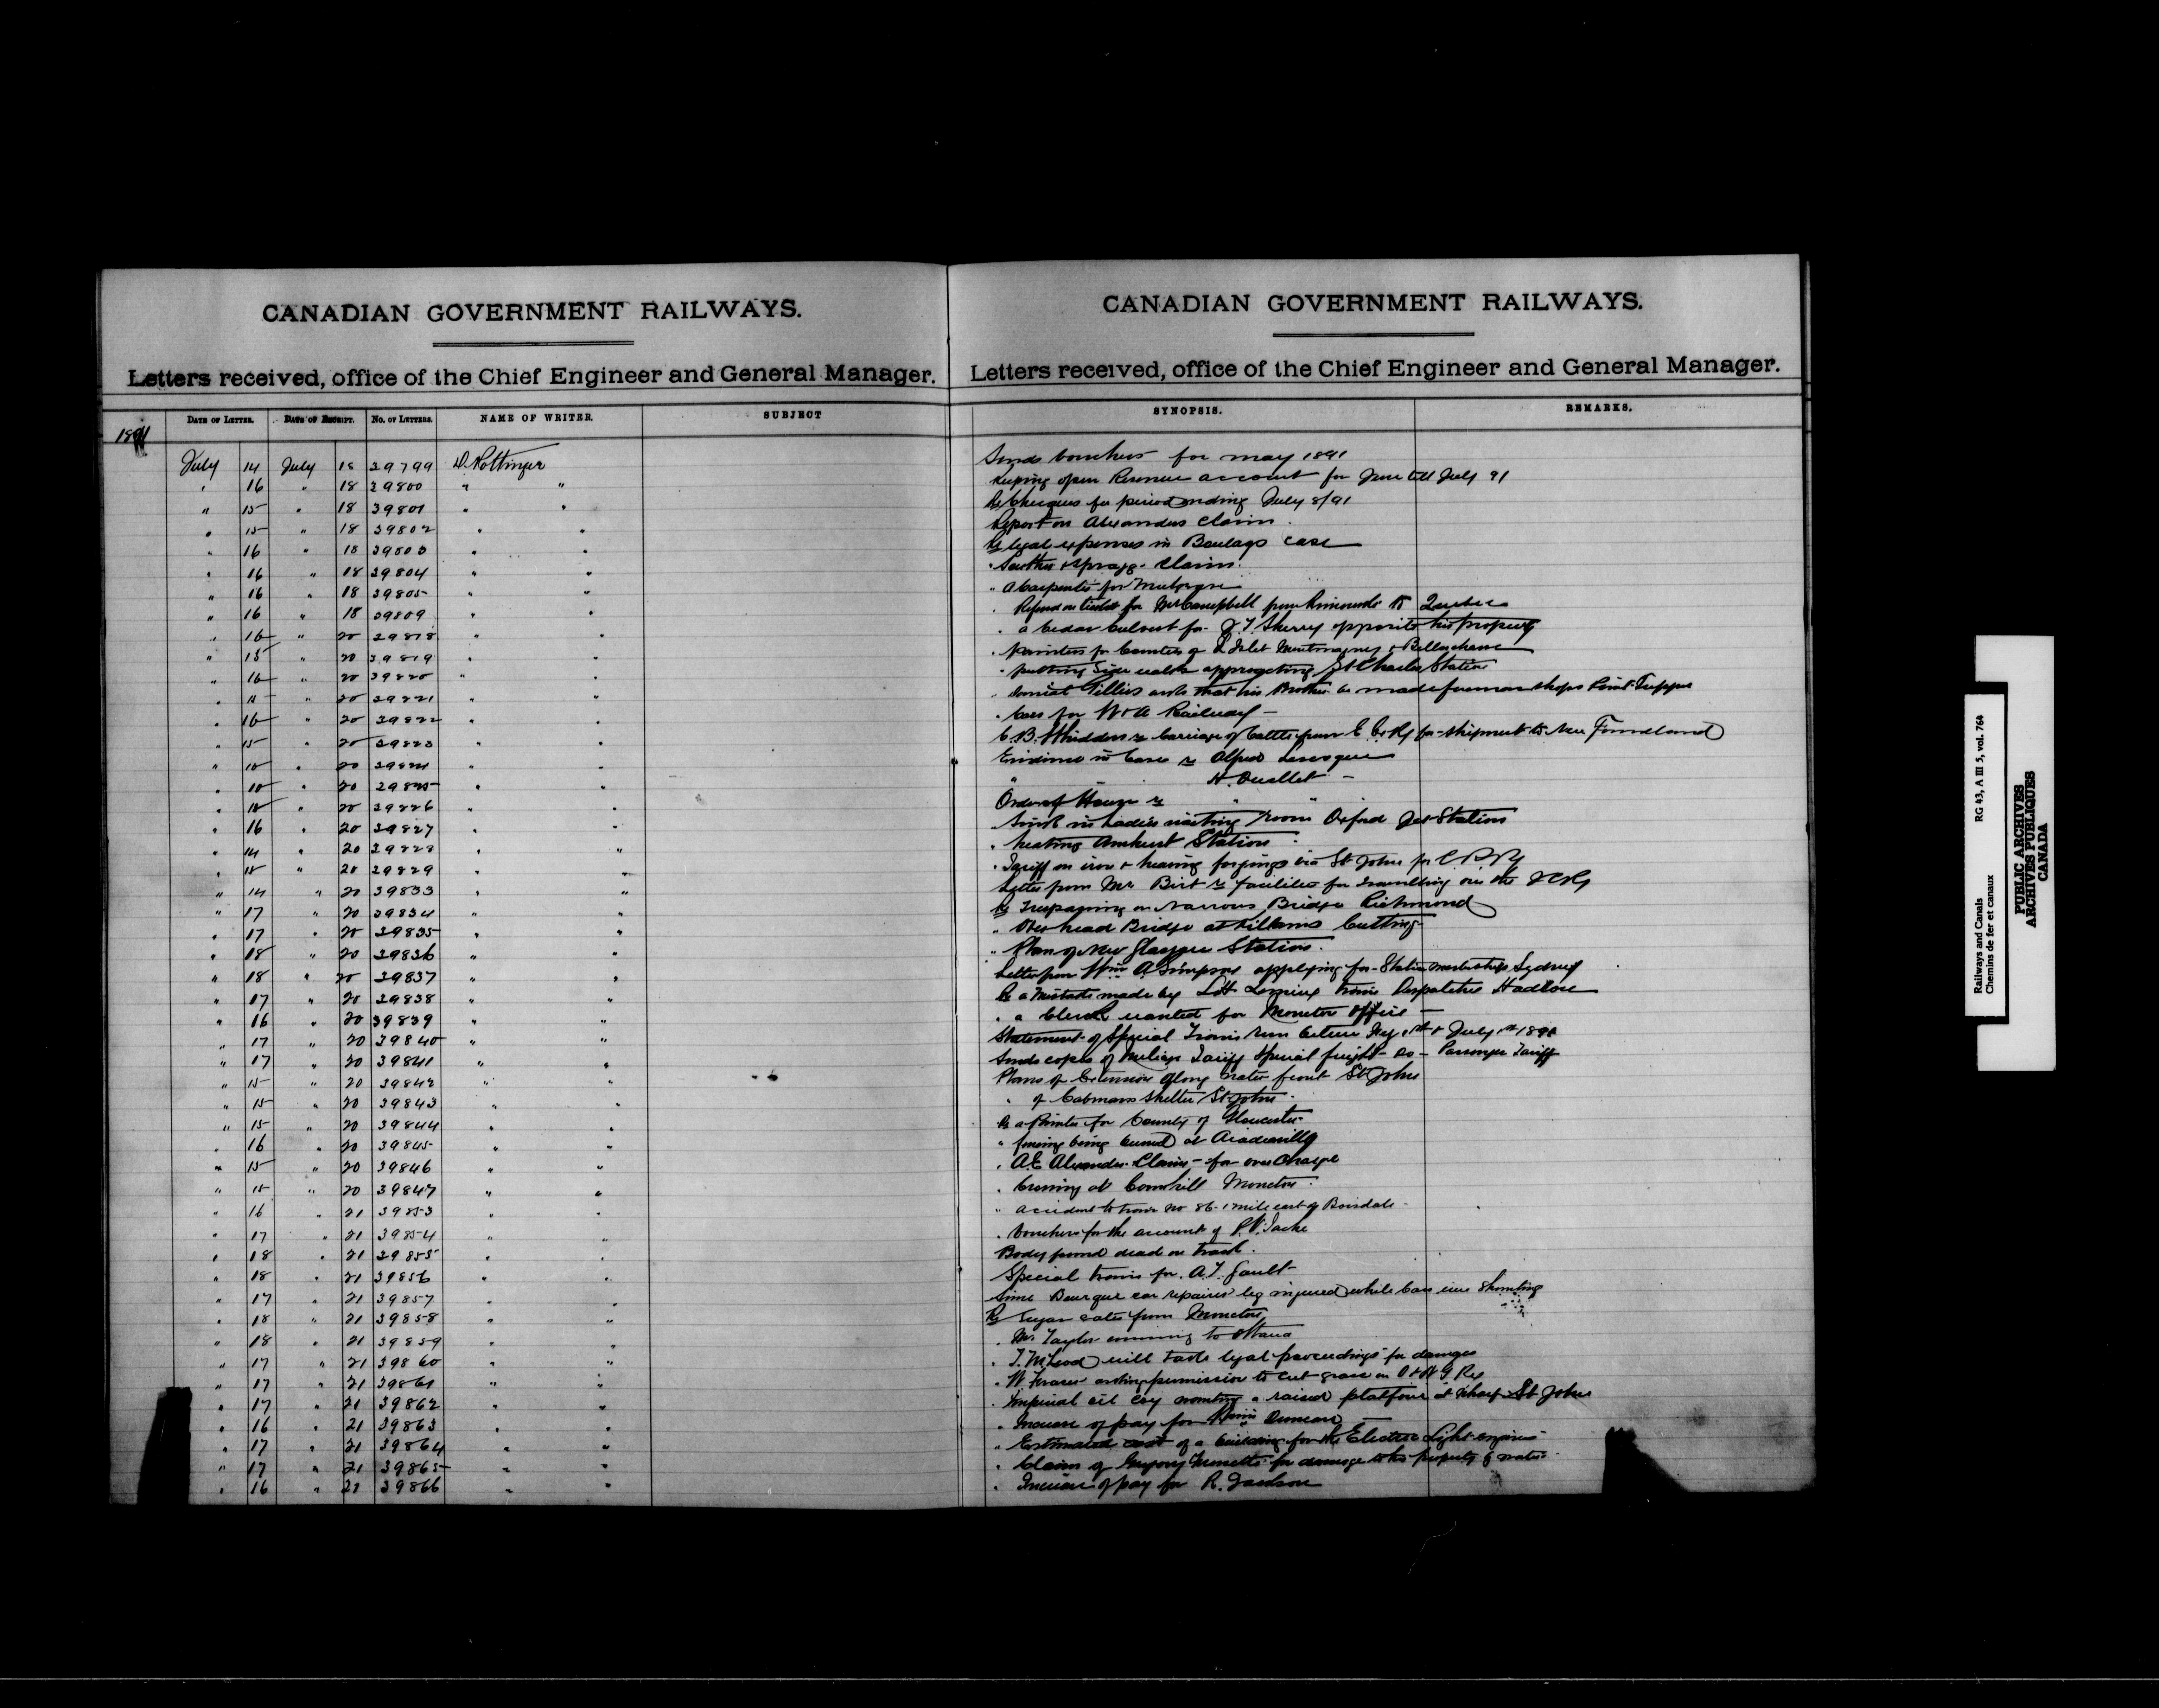 CANADIAN GOVERNMENT RAILWAYS.
Letters received, office of the Chief Engineer and General Manager.
DATE OF LETTER. DATE OF RECEIPT. No. OF LETTERS. NAME OF WRITER. SUBJECT
1891
July 14 July 18 39799 D. Pottinger
" 16 " 18 39800 " "
" 15 " 18 39801 " "
" 15 " 18 39802 " "
" 16 " 18 39803 " "
" 16 " 18 39804 " "
" 16 " 18 39805 " "
" 16 " 18 39809 " "
" 16 " 20 39818 " "
" 15 " 20 39819 " "
" 16 " 20 39820 " "
" 15 " 20 39821 " "
" 16 " 20 39822 " "
" 15 " 20 39823 " "
" 15 " 20 39824 " "
" 15 " 20 39825 " "
" 15 " 20 39826 " "
" 16 " 20 39827 " "
" 14 " 20 39828 " "
" 15 " 20 39829 " "
" 14 " 20 39833 " "
" 17 " 20 39834 " "
" 17 " 20 39835 " "
" 18 " 20 39836 " "
" 18 " 20 39837 " "
" 17 " 20 39838 " "
" 16 " 20 39839 " "
" 17 " 20 39840 " "
" 17 " 20 39841 " "
" 15 " 20 39842 " "
" 15 " 20 39843 " "
" 15 " 20 39844 " "
" 16 " 20 39845 " "
" 15 " 20 39846 " "
" 15 " 20 39847 " "
" 16 " 21 39853 " "
" 17 " 21 39854 " "
" 18 " 21 39855 " "
" 18 " 21 39856 " "
" 17 " 21 39857 " "
" 18 " 21 39858 " "
" 18 " 21 39859 " "
" 17 " 21 39860 " "
" 17 " 21 39861 " "
" 17 " 21 39862 " "
" 16 " 21 39863 " "
" 17 " 21 39864 " "
" 17 " 21 39865 " "
" 16 " 21 39866 " "
CANADIAN GOVERNMENT RAILWAYS.
Letters received, office of the Chief Engineer and General Manager.
SYNOPSIS. REMARKS.
Sends vouchers for may 1891
Keeping open Revenue account for June till July 91
Re Cheques for period ending July 8/91
Report on Alexanders Claim.
Re legal expenses in Boulays case
" claim.
" a Carpenter for
" Refund on ticket for Mr Campbell from Rimouski to Quebec
" a Cedar Culvert for J. T. Sherry opposite his property
" painters for Counties of L Islet Montmagny & Bellechasse
" putting Side walk St Charles Station
" Gillies asks that his Brother be made foreman shops Point Tupper
" Cars for W & A Railway
C. B. Whidden re Carriage of Cattle from for shipment to New Foundland
Evidence in Case re Alfred Levesque
" H. Ouellet
Order of House re " "
" Sink in Ladies waiting room Oxford Jct Station
" heating Amherst Station
" Tariff on iron & heavy forgings via St Johns for C P Ry
Letter from Mr Birt re facilities for travelling over the I C Ry
Re Trespassing on Narrows Bridge Richmond
" Over head Bridge at Cutting
" Plan of New Glasgow Station.
Letter from Wm A Simpson applying for Station mastership Sydney
Re a mistake made by train Despatcher Hadlow
" a Clerk wanted for Moncton Office
Statement of Special Trains run between & July 1st 1891
Sends copies of Tariff Special freight do Passenger Tariff
Plans of Extension along water front St Johns
" of Cabmans Shelter St Johns
Re a Printer for County of Gloucester
" fencing being burned at Acadieville
" A E Alexander Claim for over Charge
" Crossing at Cornhill Moncton
" accident to train No 86 1 mile east of Boisdale
" Vouchers for the account of
Body found dead on track.
Special train for A. T. Gault
Bourque car repairer leg injured while cars were Shunting
Re Sugar rates from Moncton
" Mr Taylor coming to Ottawa
" T. McLeod will take legal proceedings for damages
" W. Fraser asking permission to cut grass on
" Imperial oil Coy wanting a raised platform at Wharf St Johns
" Increase of pay for Duncan
" Estimated cost of a building for the Electric Light engines
" Claim of Gregory for damage to his property by water
" Increase of pay for R. Jackson
Railways and Canals RG 43, A III 5, vol. 764
Chemins de fer et canaux
PUBLIC ARCHIVES
ARCHIVES PUBLIQUES
CANADA